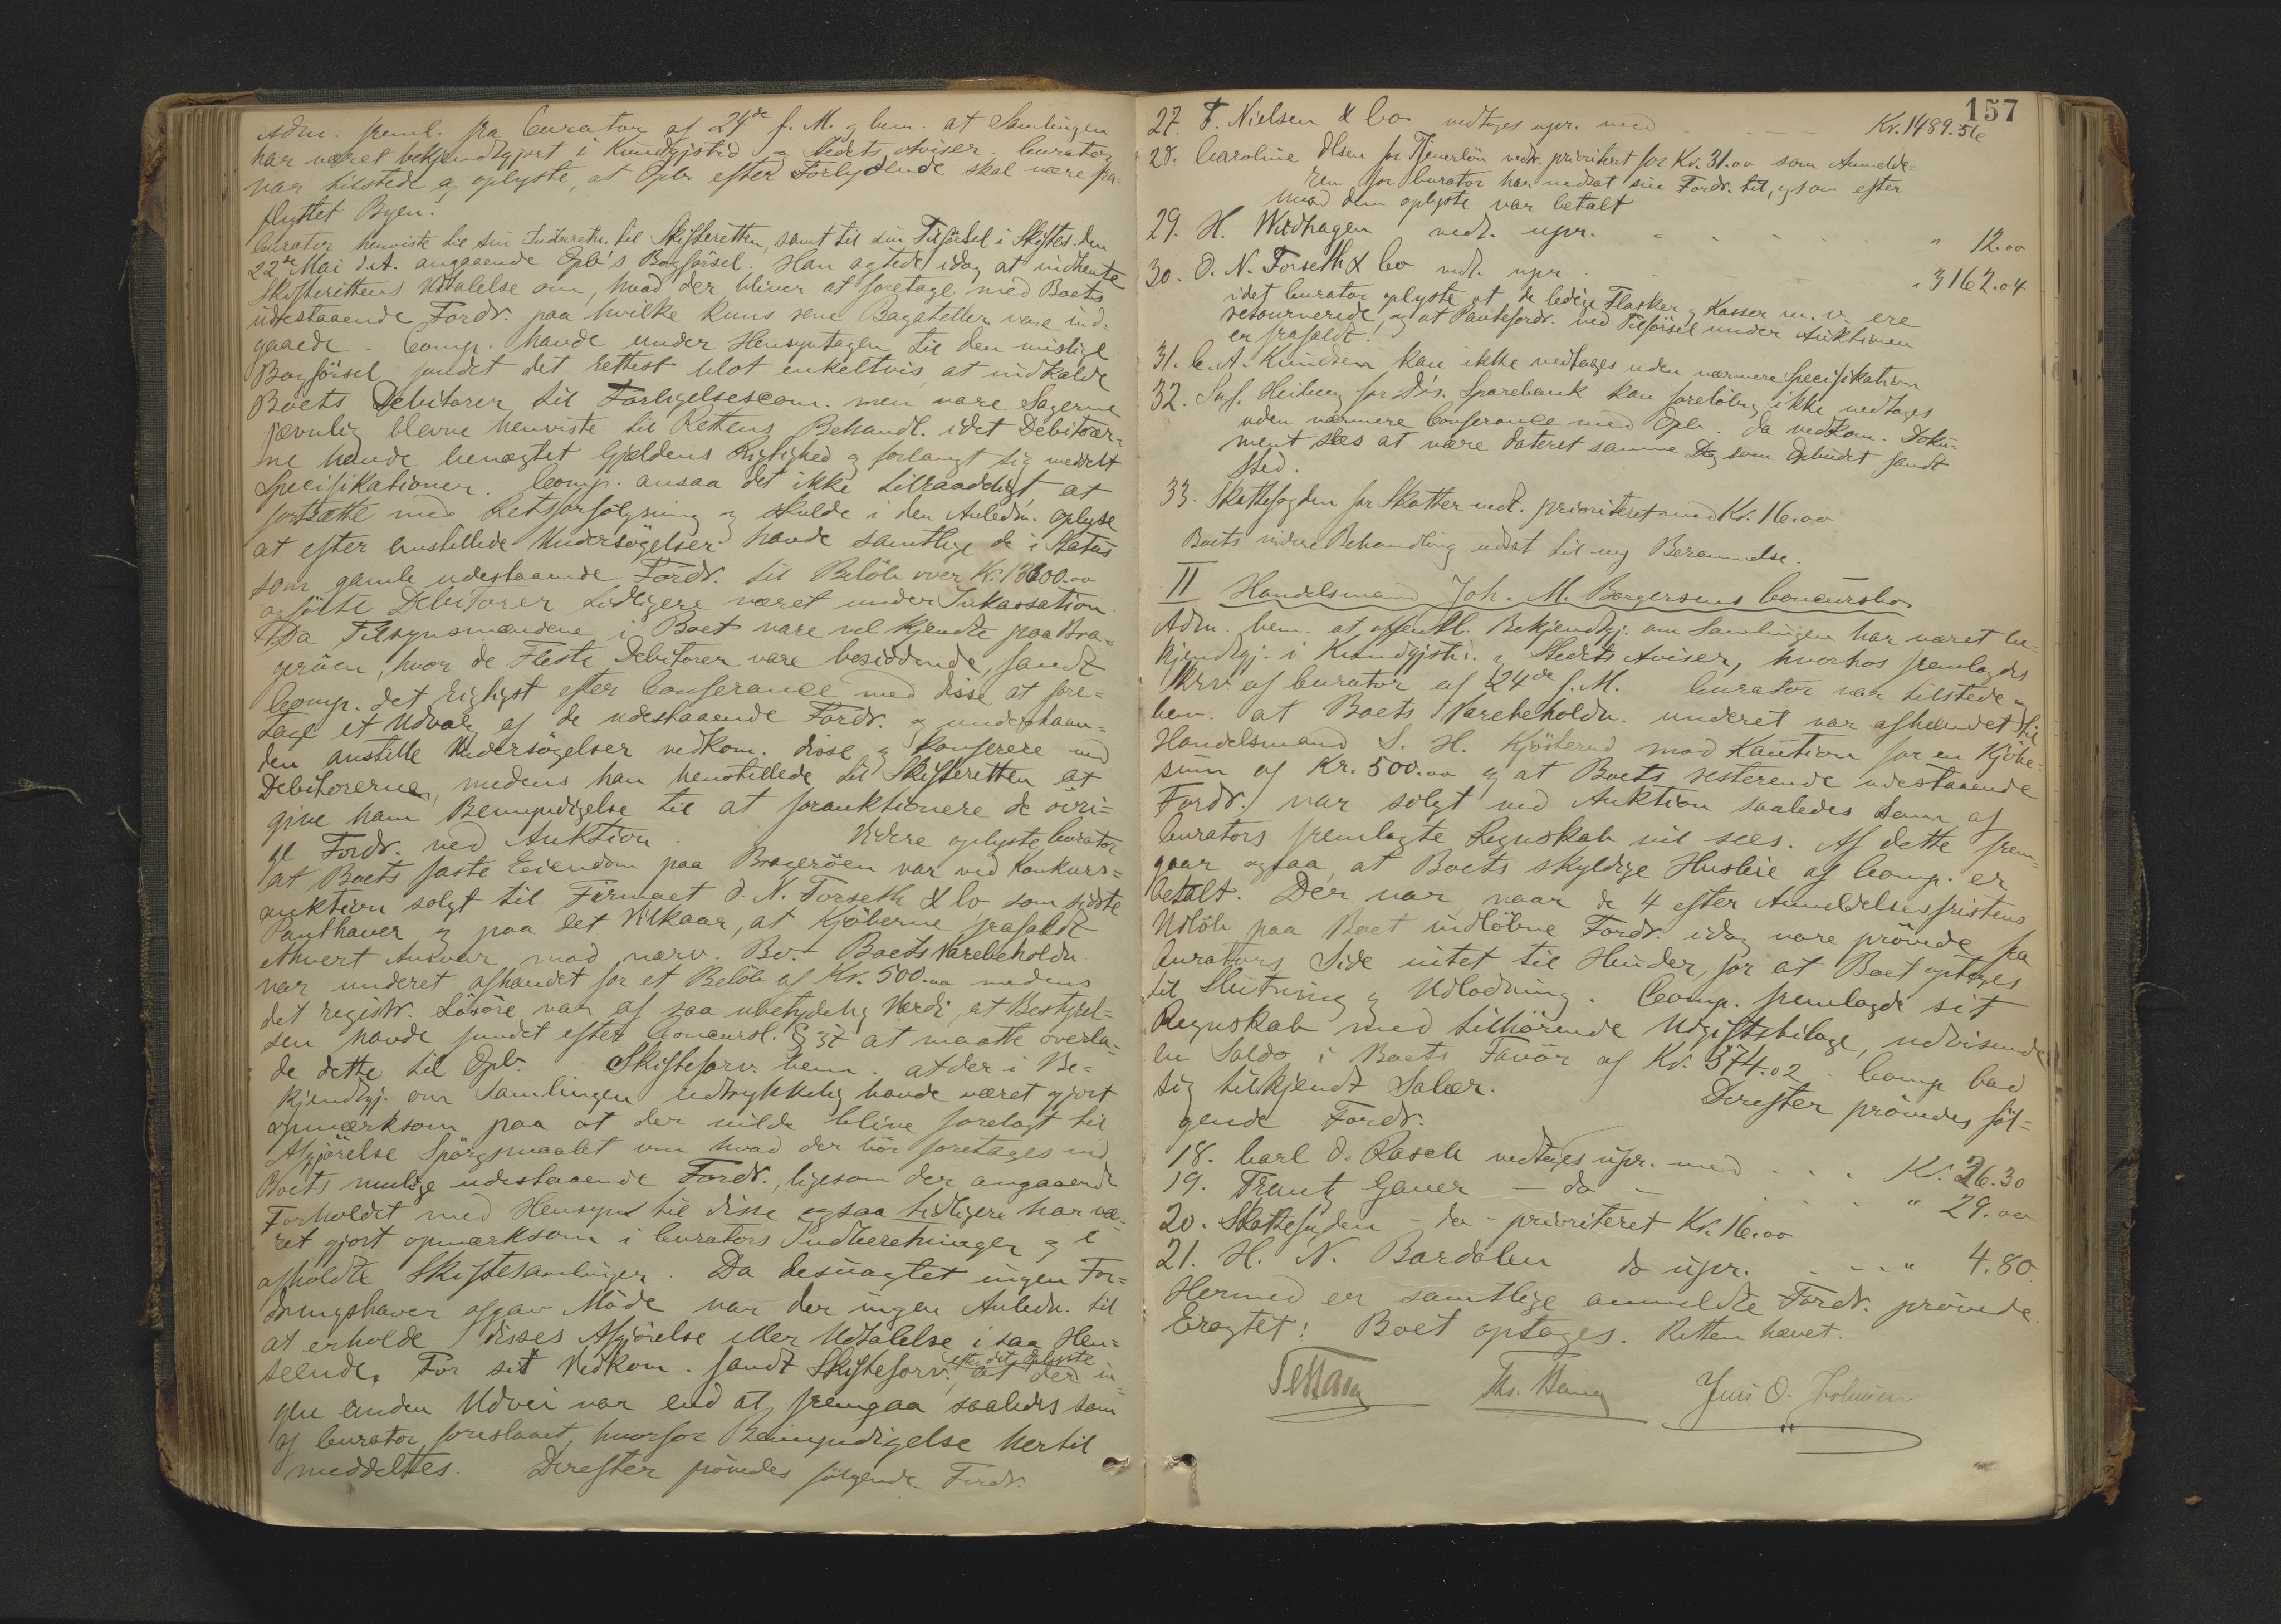 Adm. freml. fra Curator af 24de f. M. og bem. at Samlingen
har været bekjendtgjort i Kundgjstid. og Stedets Aviser. Curator
var tilstede og oplyste, at Opb. efter Forlydende skal være fra-
flyttet Byen.
Curator henviste til sin Indberetn. til Skifteretten, samt til sin Tilførsel i Skiftes. den
22de Mai d.A. angaaende Opb's Bogførsel. Han agtede idag at indhente
Skifterettens Udtalelse om, hvad der bliver at foretage med Boets
udestaaende Fordr. paa hvilke kuns rene Bagateller vare ind-
gaaede. Comp. havde under Hensyntagen til den mislige
Bogførsel fundet det rettest blot enkeltvis at indkalde
Boets Debitorer til Forligelsescom. men vare Sagerne
jævnlig blevne henviste til Rettens Behandl. idet Debitorer-
ne havde benægtet Gjældens Rigtighed og forlangt sig meddelt
Specifikationer. Comp. ansaa det ikke tilraadeligt at
fortsætte med Retsforfølgning og skulde i den Anledn. oplyse
at efter anstillede Undersøgelser havde samtlige de i Status
som gamle udestaaende Fordr. til Beløb over Kr. 13600.00
opførte Debitorer tidligere været under Inkassation.
Da Tilsynsmændene i Boet vare vel kjendte paa Bra-
gerøen, hvor de Fleste Debitorer vare bosiddende, fandt
Comp. det rigtigst efter Conferance med disse at fore-
tage et Udvalg af de udestaaende Fordr. og underhaan-
den anstille Undersøgelser vedkom. disse og konferere med
Debitorerne, medens han henstillede til Skifteretten at
give ham Bemyndigelse til at forauktionere de øvri-
ge Fordr. ved Auktion. Videre oplyste Curator
at Boets faste Eiendom paa Bragerøen var ved Konkurs-
auktion solgt til Firmaet O. N. Forseth & Co som sidste
Panthaver og paa det Vilkaar, at Kjøberne frafaldt
ethvert Ansvar mod nærv. Bo. - Boets Varebeholdn.
var underet afhændet for et Beløb af Kr. 500.00 medens
det registr. Løsøre var af saa ubetydelig Værdi, at Bestyrel-
sen havde fundet efter Concursl. § 37 at maatte overla-
de dette til Opb. Skifteforv. bem. at der i Be-
kjendtgj. om Samlingen udtrykkelig havde været gjort
opmærksom paa at der vilde blive forelagt til
Afgjørelse Spørgsmaalet om hvad der bør foretages med
Boets mulige udestaaende Fordr., ligesom der angaaende
Forholdet med Hensyn til disse ogsaa tidligere har væ-
ret gjort opmærksom i Curators Indberetninger og i
afholdte Skiftesamlinger. Da desuagtet ingen For-
dringshaver afgav Møde var der ingen Anledn. til
at erholde disses Afgjørelse eller Udtalelse i saa Hen-
seende. For sit Vedkom. fandt Skifteforv. efter det Oplyste at der in-
gen anden Udvei var end at fremgaa saaledes som
af Curator foreslaaet, hvorfor Bemyndigelse hertil
meddeltes. Derefter prøvedes følgende Fordr.
157
27. F. Nielsen & Co. vedtages upr. med Kr. 1489.56
28. Caroline Olsen for Tjenerløn vedt. prioriteret for Kr. 31.00 som Anmelde-
ren for Curator har nedsat sin Fordr. til, og som efter
hvad den oplyste var betalt
29. H. Wirdhagen vedt. upr. " 12.00
30. O. N. Forseth & Co vedt. upr. " 3162.04
idet Curator oplyste at de ledige Flasker og Kasser m. v. ere
retournerede, og at Pantefordr. ved Tilførsel under Auktionen
er frafaldt.
31. C. A. Knudsen kan ikke vedtages uden nærmere Specifikation
32. Sagf. Heiberg for D's. Sparebank kan foreløbig ikke vedtages
uden nærmere Conferance med Opb. da vedkom. Doku-
ment sees at være dateret samme Dag som Opbudet fandt
Sted.
33. Skattefogden for Skatter vedt. prioriteret med Kr. 16.00
Boets videre Behandling udsat til ny Berammelse.
II Handelsmand Joh. M. Borgersens Concursbo.
Adm. bem. at offentl. Bekjendtgj. om Samlingen har været be-
kjendtgj. i Kundgjstid. og Stedets Aviser, hvorhos fremlagdes
Skrv. af Curator af 24de f. M. Curator var tilstede og
bem. at Boets Varebeholdn. underet var afhændet til
Handelsmand S. H. Kjøsterud mod Kaution for en Kjøbe-
sum af Kr. 500.00 og at Boets resterende udestaaende
Fordr. var solgt ved Auktion saaledes som af
Curators fremlagte Regnskab vil sees. Af dette frem-
gaar ogsaa, at Boets skyldige Husleie af Comp. er
betalt. Der var, naar de 4 efter Anmeldelsesfristens
Udløb paa Boet indløbne Fordr. idag vare prøvede fra
Curators Side intet til Hinder for at Boet optages
til Slutning og Udlodning. Comp. fremlagde sit
Regnskab med tilhørende Udgiftsbilage, udvisende
en Saldo i Boets Favør af Kr. 574.02. Comp bad
sig tilkjendt Salær. Derefter prøvedes føl-
gende Fordr.
18. Carl O. Rasch vedtages upr. med . . . Kr. 26.30
19. Frantz Gauer - do - " 29.00
20. Skattefogden - do - prioriteret Kr. 16.00
21. H. N. Bardalen do upr. . . . " 4.80
Hermed er samtlige anmeldte Fordr. prøvede.
Eragtet: Boet optages. Retten hævet.
Jens O.